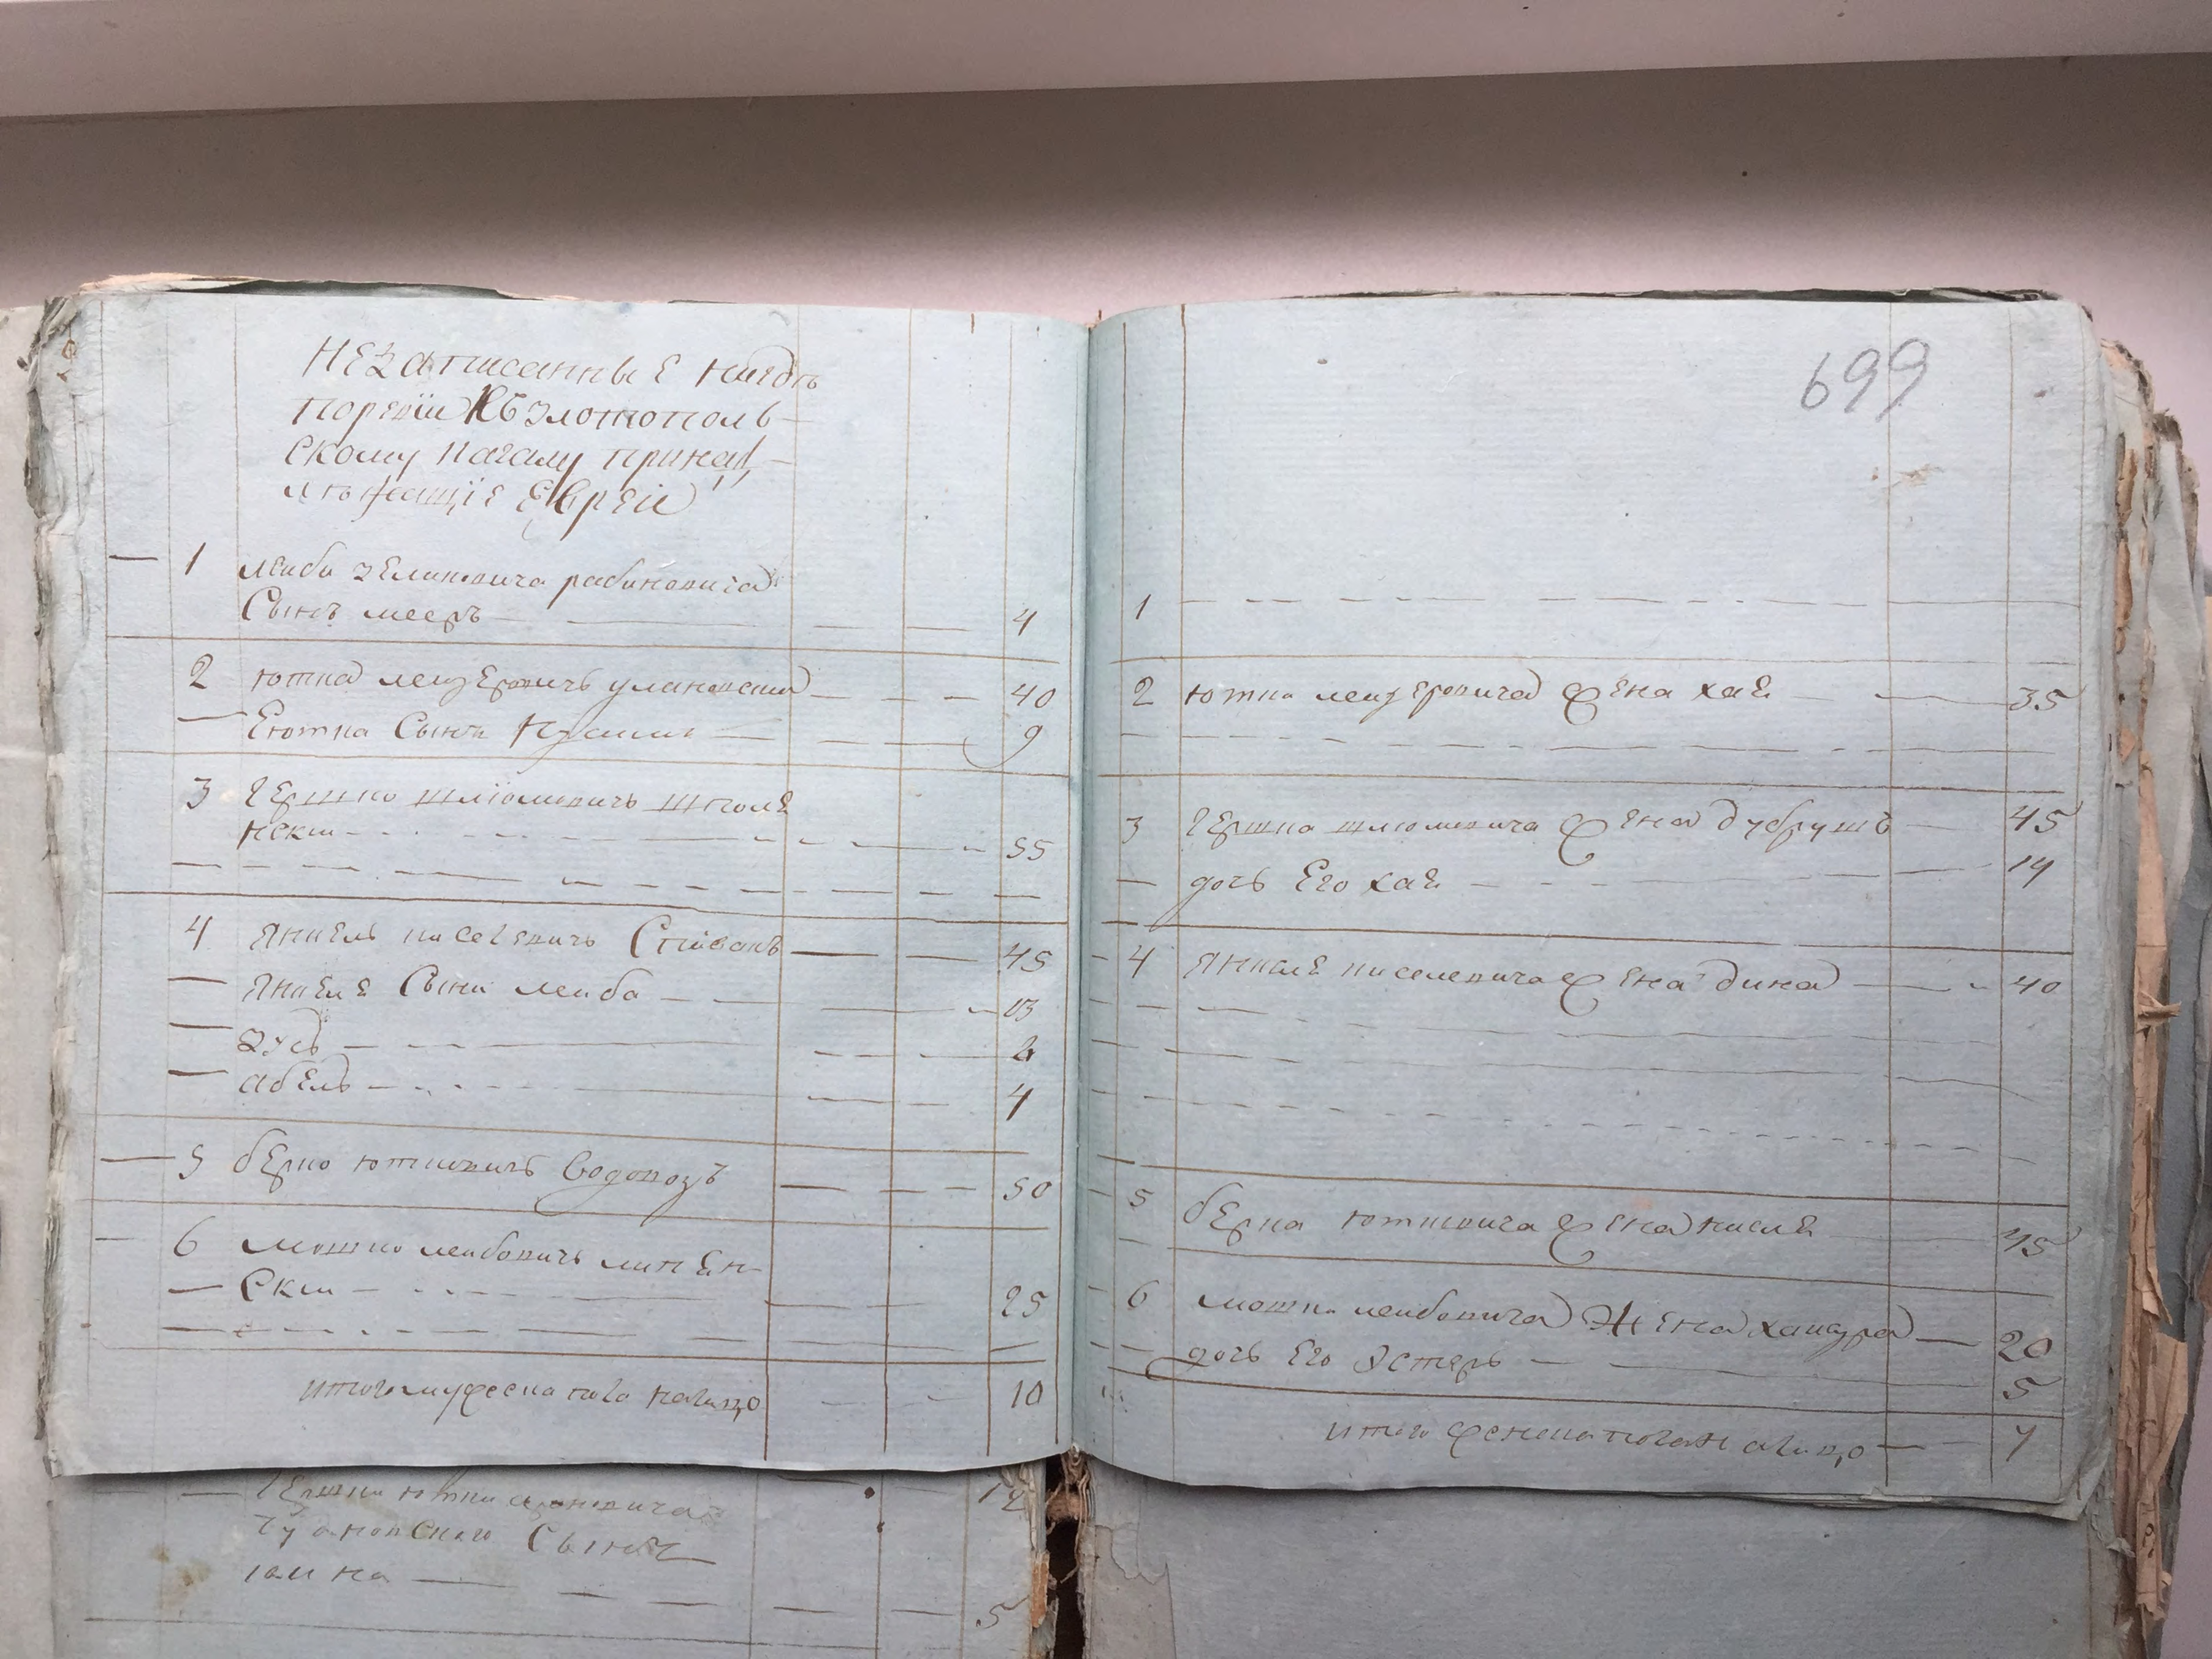 Незаписанные нигдѣ
поревїи Къ злотополь-
скому кагалу принад-
лѣжащїе Евреи
1 леиби зеликовича рабиновича
Сынъ мееръ 4
2 ютка леизеровичъ улановски 40
Еютка Сынъ 9
3 гершко шлїомовичъ школѣ
нски 55
4 Янкель киселевичъ Спивакъ 45
Янкелѣ Сыни леиба 13
зусь
абель 4
5 берко ютковичъ Водовозъ 50
6 мошко леибовичъ липѣн-
Ски 25
итого мужеска пола налицо 10
699
1
2 ютки леизеровича жена хаѣ 35
3 гершка шлюмовича жена дубрушъ 45
дочь Его хаѣ 14
4 Янкелѣ киселевича жена дина 40
5 берка ютковича жена кислѣ 45
6 мошки леибовича Жена 20
дочь Его Эстеръ 5
итого женска пола налицо 7
12
Сынъ
5